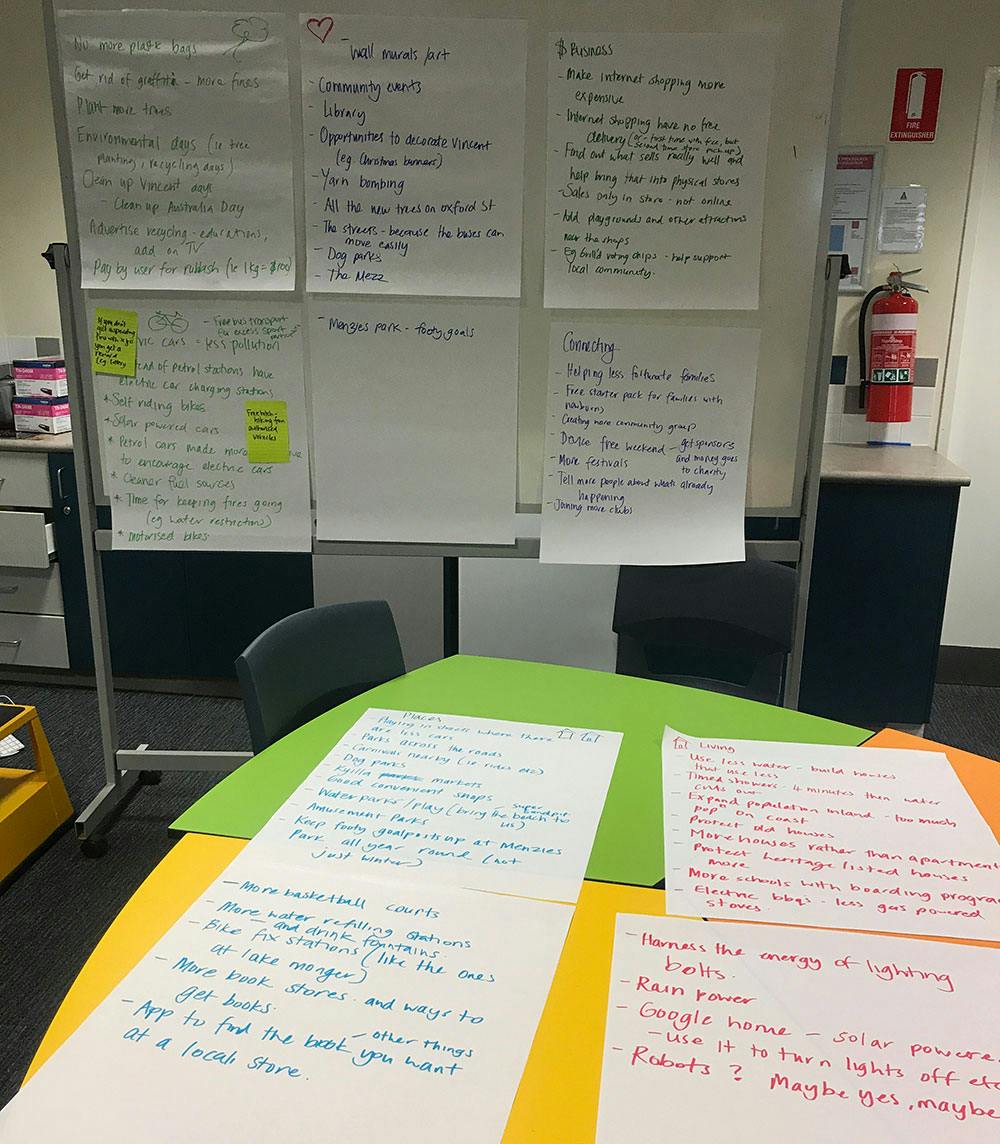 No more plastic bags
Get rid of graffiti - more fines
Plant more trees
Environmental days (ie tree
planting, recycling days)
Clean up Vincent days
- Clean up Australia Day
Advertise recycling - educations,
add on TV
Pay by user for rubbish (ie 1kg = $100)
- Wall murals/art
- Community events
- Library
- Opportunities to decorate Vincent
(eg Christmas banners)
- Yarn bombing
- All the new trees on oxford St
- The streets - because the buses can
move easily
- Dog parks
- The Mezz
$ Business
- Make internet shopping more
expensive
- Internet shopping have no free
delivery (or - first time with free, but
second time store pick up)
- Find out what sells really well and
help bring that into physical stores
- Sales only in store - not online
- Add playgrounds and other attractions
near the shops
- Eg Grill'd voting chips - help support
local community.
FIRE
EXTINGUISHER
- Free bus transport
cars = less pollution
of petrol stations have
electric car charging stations
* Self riding bikes
* Solar powered cars
* Petrol cars made more
to encourage electric cars
* Cleaner fuel sources
* Time for keeping fires going
(eg water restrictions)
* motorised bikes.
you get a
reward
(eg lottery
Free hitch-
hiking from
authorised
vehicles
- Menzies park - footy goals
Connecting
- Helping less fortunate families
- Free starter pack for families with
newborns
- Creating more community group
- Device free weekend - get sponsors
and money goes
to charity
- More festivals
- Tell more people about what's already
happening
- Joining more clubs
Places
- Playing in streets where there
are less cars
- Parks across the roads
- Carnival nearby (ie rides etc)
- Dog parks
- Kyilla markets
- Good convenient shops
- Water parks/play (bring the beach to
us) super sandpit
- Amusement Parks
- Keep footy goalposts up at Menzies
Park all year round (not
just winter)
- More basketball courts
- More water refilling stations
- and drink fountains.
- Bike fix stations (like the ones
at lake monger)
- More book stores. and ways to
get books.
- App to find the book you want
- other things
at a local store.
Living
- Use less water - build houses
that use less
- Timed showers - 4 minutes then water
cuts out
- Expand population inland - too much
pop on coast
- Protect old houses
- More houses rather than apartment
- Protect heritage listed houses
more
- More schools with boarding progra
- Electric bbqs - less gas powered
stoves
- Harness the energy of lighting
bolts.
- Rain power
- Google home - solar powere
- use it to turn lights off etc
- Robots? Maybe yes, maybe